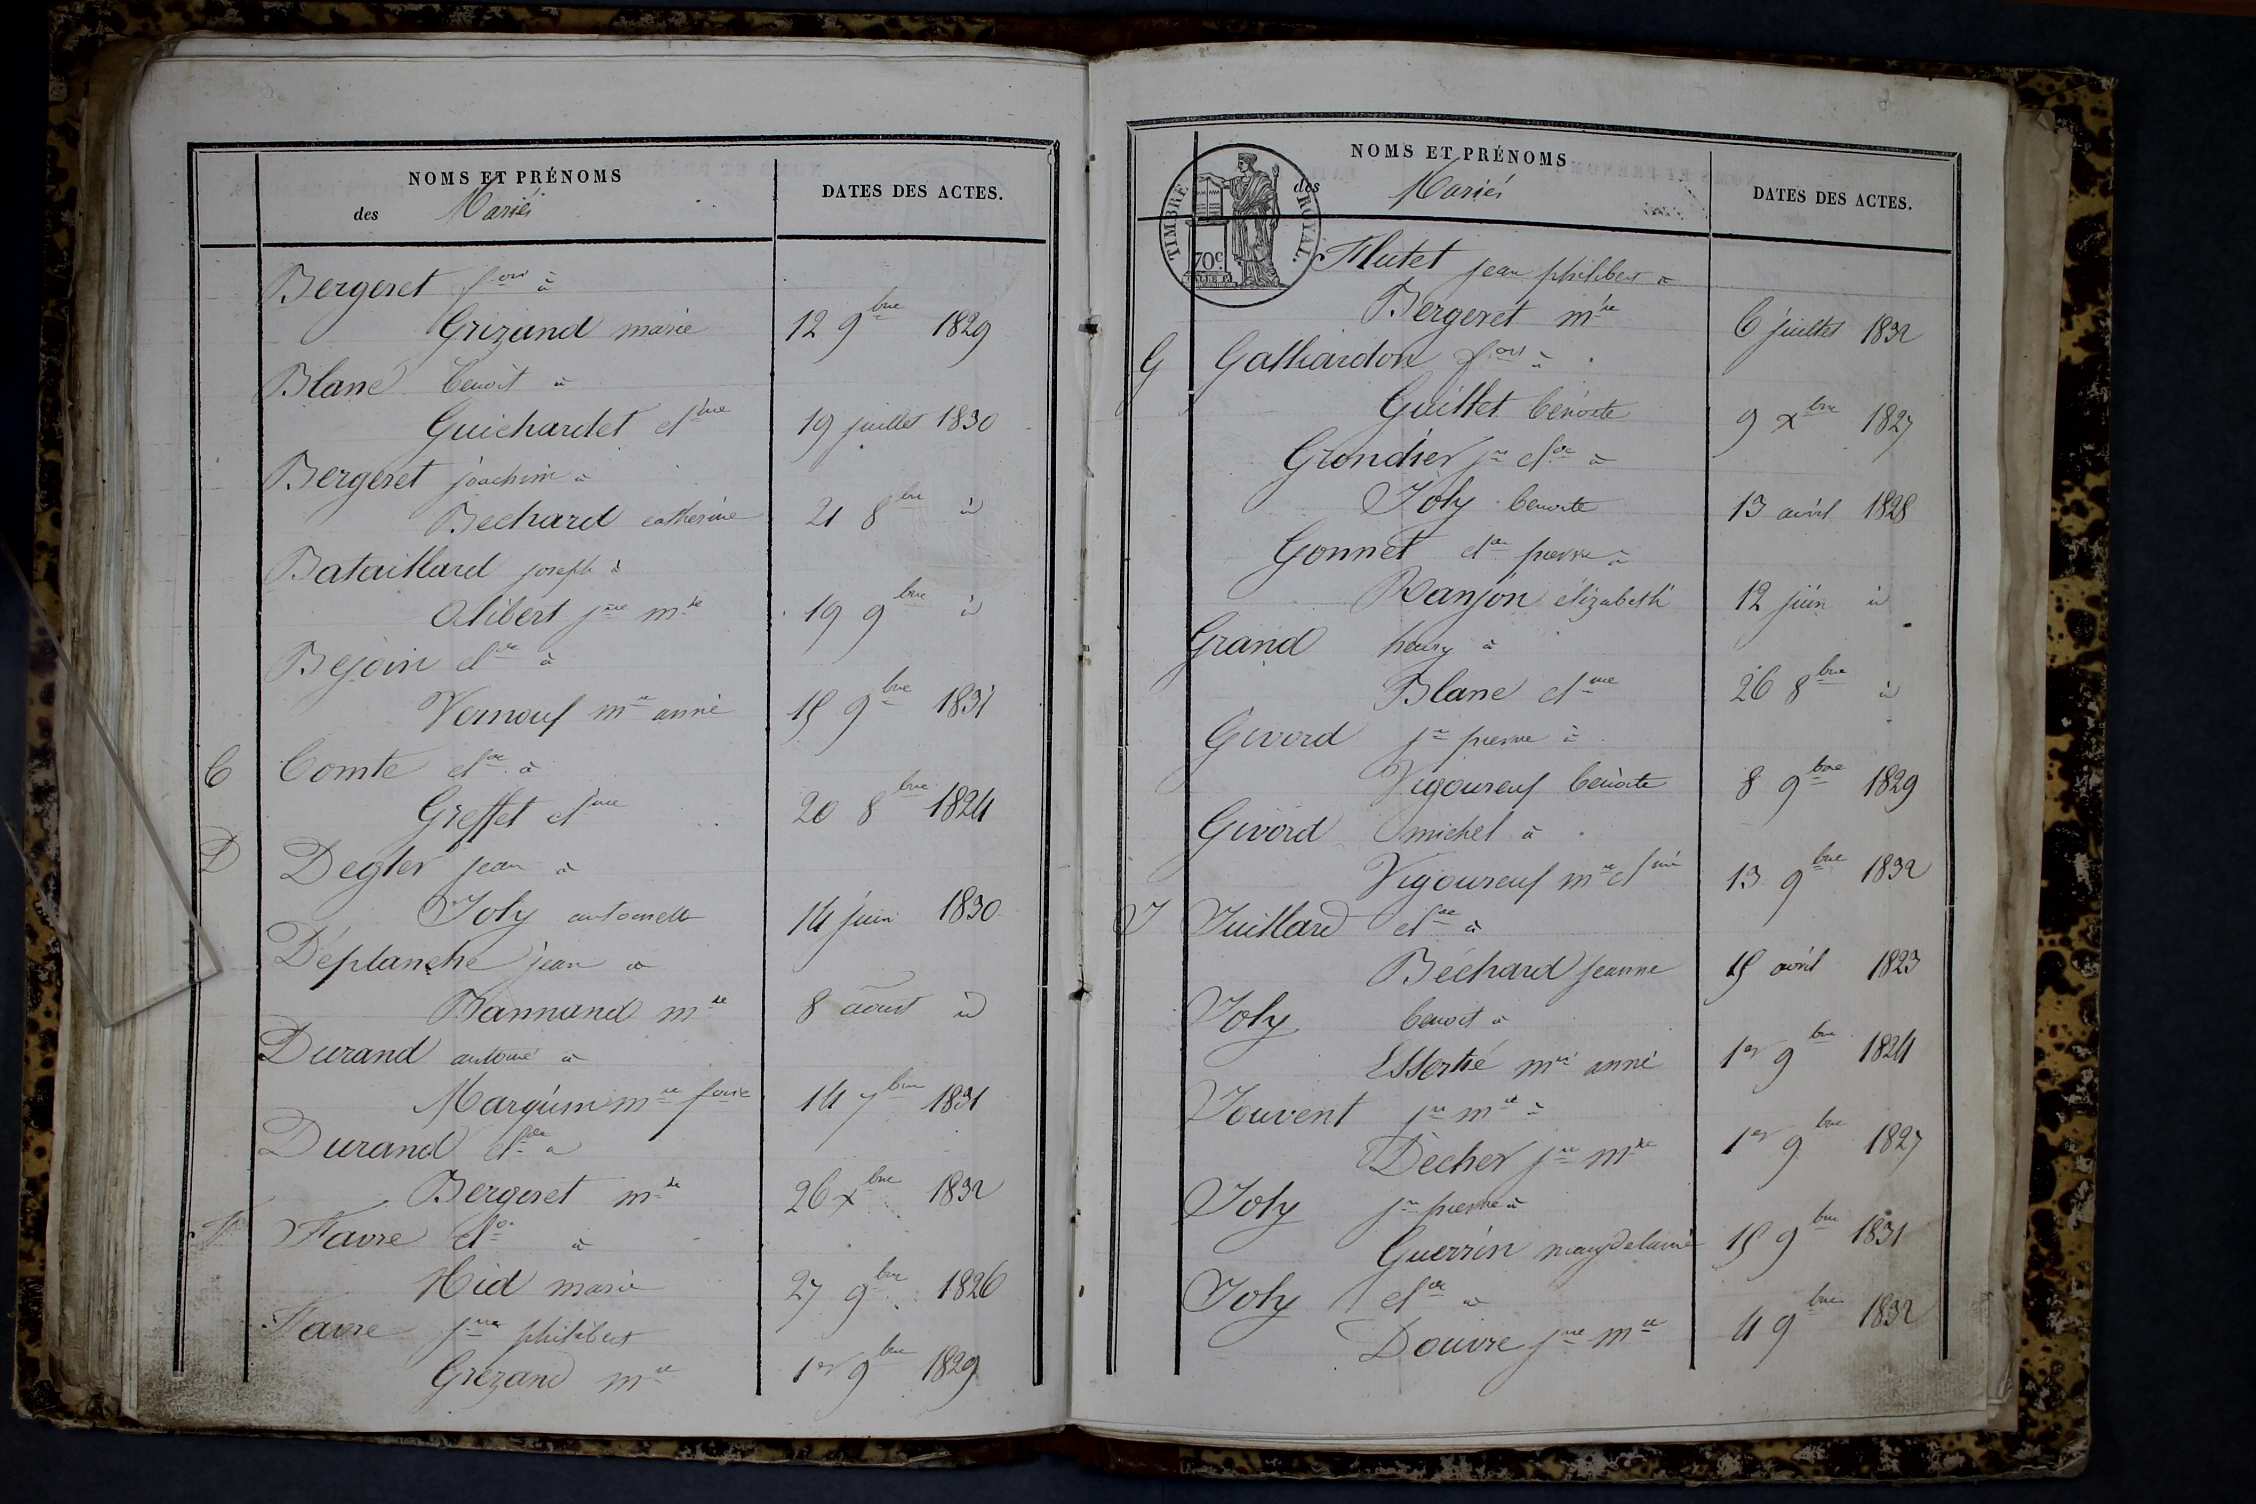 NOMS ET PRÉNOMS
des Mariés
DATES DES ACTES.
Bergeret f.ois à
Grizand marie 12 9bre 1829
Blanc benoit à
Guichardet cl.ine 19 juillet 1830
Bergeret joachim à
Bechard catherine 21 8bre id
Bataillard joseph à
Alibert j.ne m.ie 19 9bre id
Bejoin cl.de à
Vernouf m.ie anne 15 9bre 1831
C Comte cl.de à
Greffet cl.ine 20 8bre 1824
D Degler jean à
Joly antoinette 14 juin 1830
Déplanche jean à
Bannand m.ie 8 aoust id
Durand antoine à
Margüin m.ie f.oise 14 7bre 1831
Durand cl.de à
Bergeret m.ie 26 xbre 1832
F Favre cl.de à
Nid marie 27 9bre 1826
Favre j.n philibert
Grézand m.ie 1er 9bre 1829
NOMS ET PRÉNOMS
des Mariés
DATES DES ACTES.
TIMBRE ROYAL.
70c.
Flutet jean philibert à
Bergeret m.ie 6 juillet 1832
G Galhardon f.ois à
Guillet benoite 9 xbre 1827
Grondier j.n cl.de à
Joly benoite 13 avril 1828
Gonnet cl.de pierre à
Ranjon élizabeth 12 juin id
Grand henry à
Blanc cl.ine 26 8bre id
Givord j.n pierre à
Vigoureuf benoite 8 9bre 1829
Givord michel à
Vigoureuf m.ie cl.ine 13 9bre 1832
J Juillard cl.de à
Béchard jeanne 15 avril 1823
Joly benoit à
Essertié m.ie anne 1er 9bre 1824
Jouvent j.n m.ie à
Décher j.ne m.ie 1er 9bre 1827
Joly j.n pierre à
Guerrin magdelaine 15 9bre 1831
Joly cl.de à
Douvre j.ne m.ie 4 9bre 1832